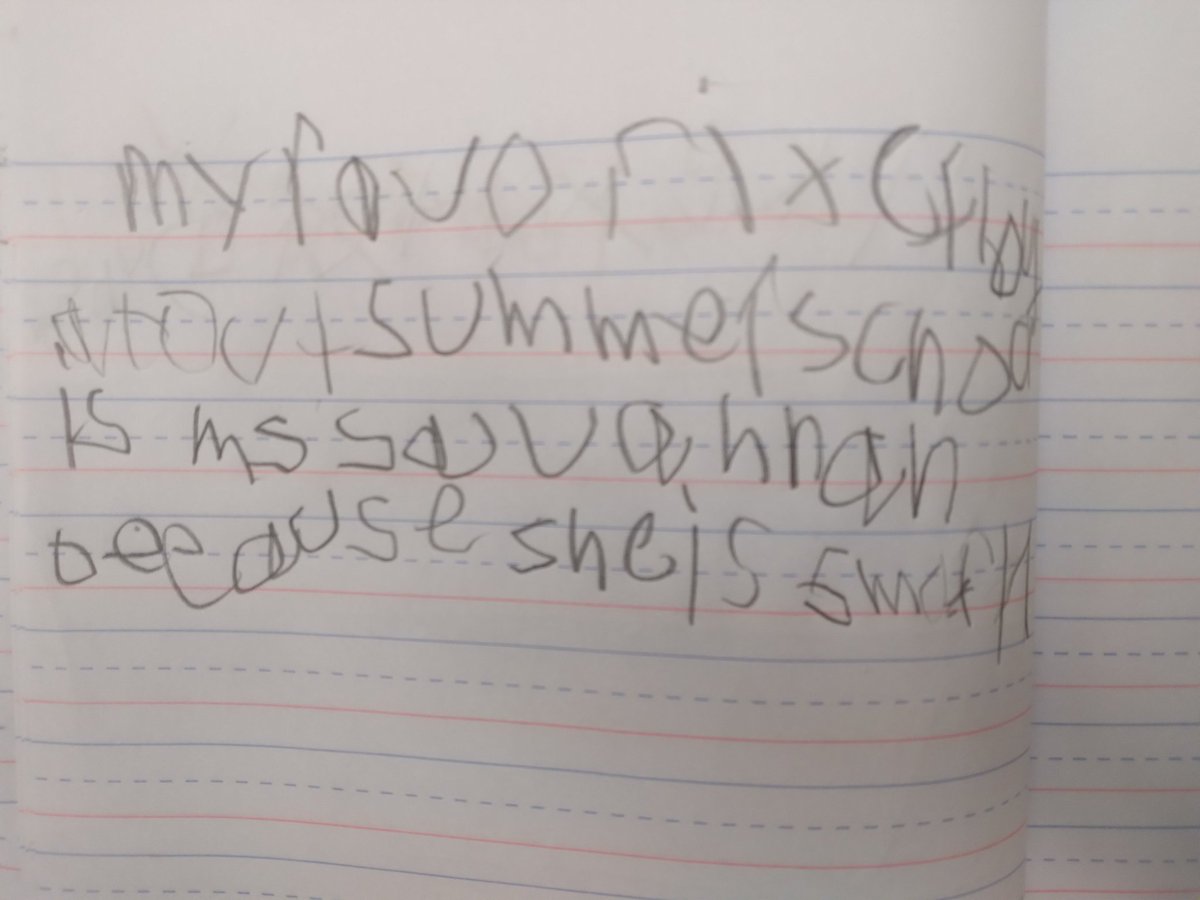 my favorit
about summer school
is ms savvahnan
because she is smart